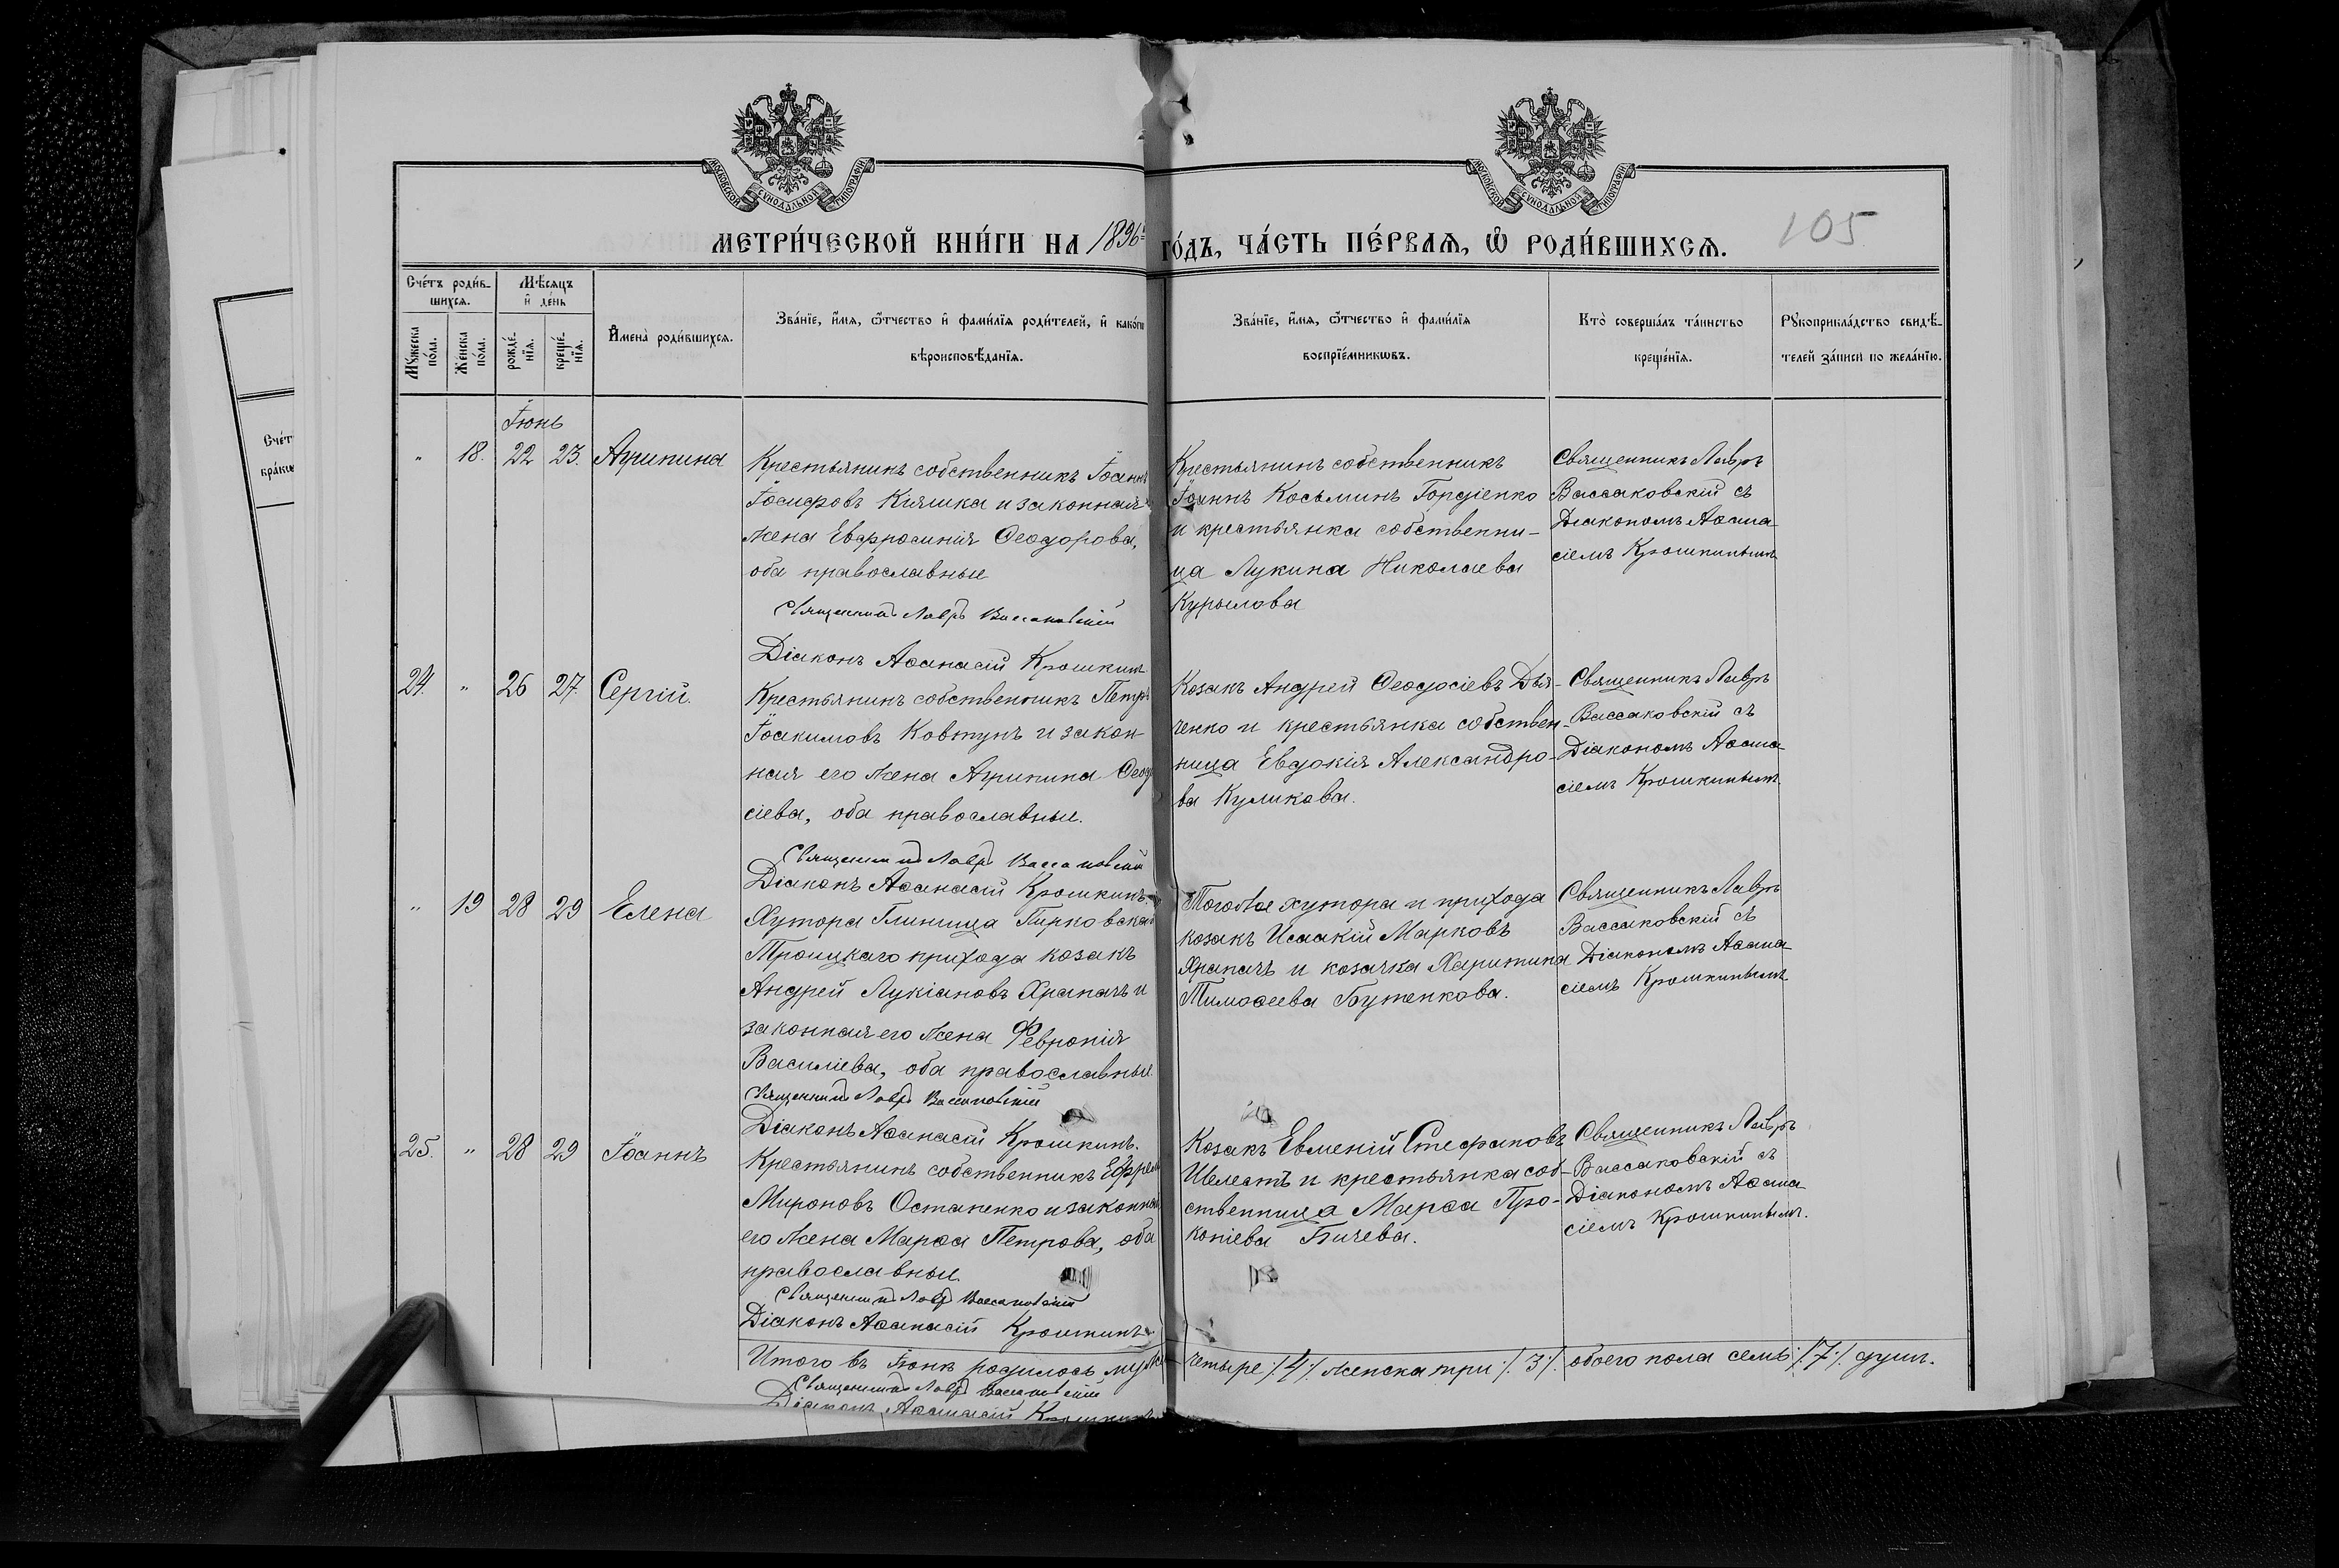 МОСКОВСКОЙ СѴНОДАЛЬНОЙ ТИПОГРАФІИ
МОСКОВСКОЙ СѴНОДАЛЬНОЙ ТИПОГРАФІИ
МЕТРИ́ЧЕСКОЙ КНИ́ГИ НА 1896й ГО́ДЪ, ЧА́СТЬ ПЕ́РВАѦ, Ѿ РОДИ́ВШИХСѦ.
105
Сче́тъ роди́в-
шихсѧ.
Мѣ́сѧцъ
и҆ де́нь
Мꙋ́жеска
по́ла.
Же́нска
по́ла.
рожде́-
нїѧ.
креще́-
нїѧ.
И҆мена̀ роди́вшихсѧ.
Зва́нїе, и҆́мѧ, ѻ҆́тчество и҆ фами́лїѧ роди́телей, и҆ како́гѡ
вѣроисповѣ́данїѧ.
Зва́нїе, и҆́мѧ, ѻ҆́тчество и҆ фами́лїѧ
воспрїе́мникѡвъ.
Кто̀ соверша́лъ та́инство
креще́нїѧ.
Рꙋкоприкла́дство свидѣ́-
телей за́писи по жела́нїю.
Сче́т
бра́кѡ
Іюнь
" 18. 22 23. Агрипина
Крестьянинъ собственникъ Іоаннъ
Іосифовъ Кіяшка и законная
жена Евфросинія Ѳеодорова,
оба православные
Священникъ Лавръ Вассаковскій
Діаконъ Аѳанасій Крошкинъ
Крестьянинъ собственникъ
Іоаннъ Косьминъ Гордіенко
и крестьянка собственни-
ца Лукина Николаева
Курылова
Священникъ Лавръ
Вассаковскій съ
Діакономъ Аѳана-
сіемъ Крошкинымъ
24. " 26 27. Сергій.
Крестьянинъ собственникъ Петръ
Іоакимовъ Ковтунъ и закон-
ная его жена Агрипина Ѳеодо
сіева, оба православные.
Священникъ Лавръ Вассаковскій
Діаконъ Аѳанасій Крошкинъ
Козакъ Андрей Ѳеодосіевъ Дья-
ченко и крестьянка собствен-
ница Евдокія Александро-
ва Куликова.
Священникъ Лавръ
Вассаковскій съ
Діакономъ Аѳана-
сіемъ Крошкинымъ
" 19 28 29 Елена
Хутора Глинища Пирковскаго
Троицкаго прихода козакъ
Андрей Лукіановъ Храпачъ и
законная его жена Февронія
Василіева, оба православные
Священникъ Лавръ Вассаковскій
Діаконъ Аѳанасій Крошкинъ.
Тогоже хутора и прихода
козакъ Исаакій Марковъ
Храпачъ и козачка Харитина
Тимоѳеева Бутенкова.
Священникъ Лавръ
Вассаковскій съ
Діакономъ Аѳана-
сіемъ Крошкинымъ
25. " 28 29 Іоаннъ
Крестьянинъ собственникъ Ефремъ
Мироновъ Остапенко и законная
его жена Марѳа Петрова, оба
православные.
Священникъ Лавръ Вассаковскій
Діаконъ Аѳанасій Крошкинъ
Козакъ Евмений Стефановъ
Шелестъ и крестьянка соб-
ственница Марѳа Про-
копіева Бичева.
Священникъ Лавръ
Вассаковскій съ
Діакономъ Аѳана-
сіемъ Крошкинымъ.
Итого въ Іюнѣ родилось муж четыре /.4/. женска три /. 3/. обоего пола семь /.7/. душъ.
Священникъ Лавръ Вассаковскій
Діаконъ Аѳанасій Крошкинъ